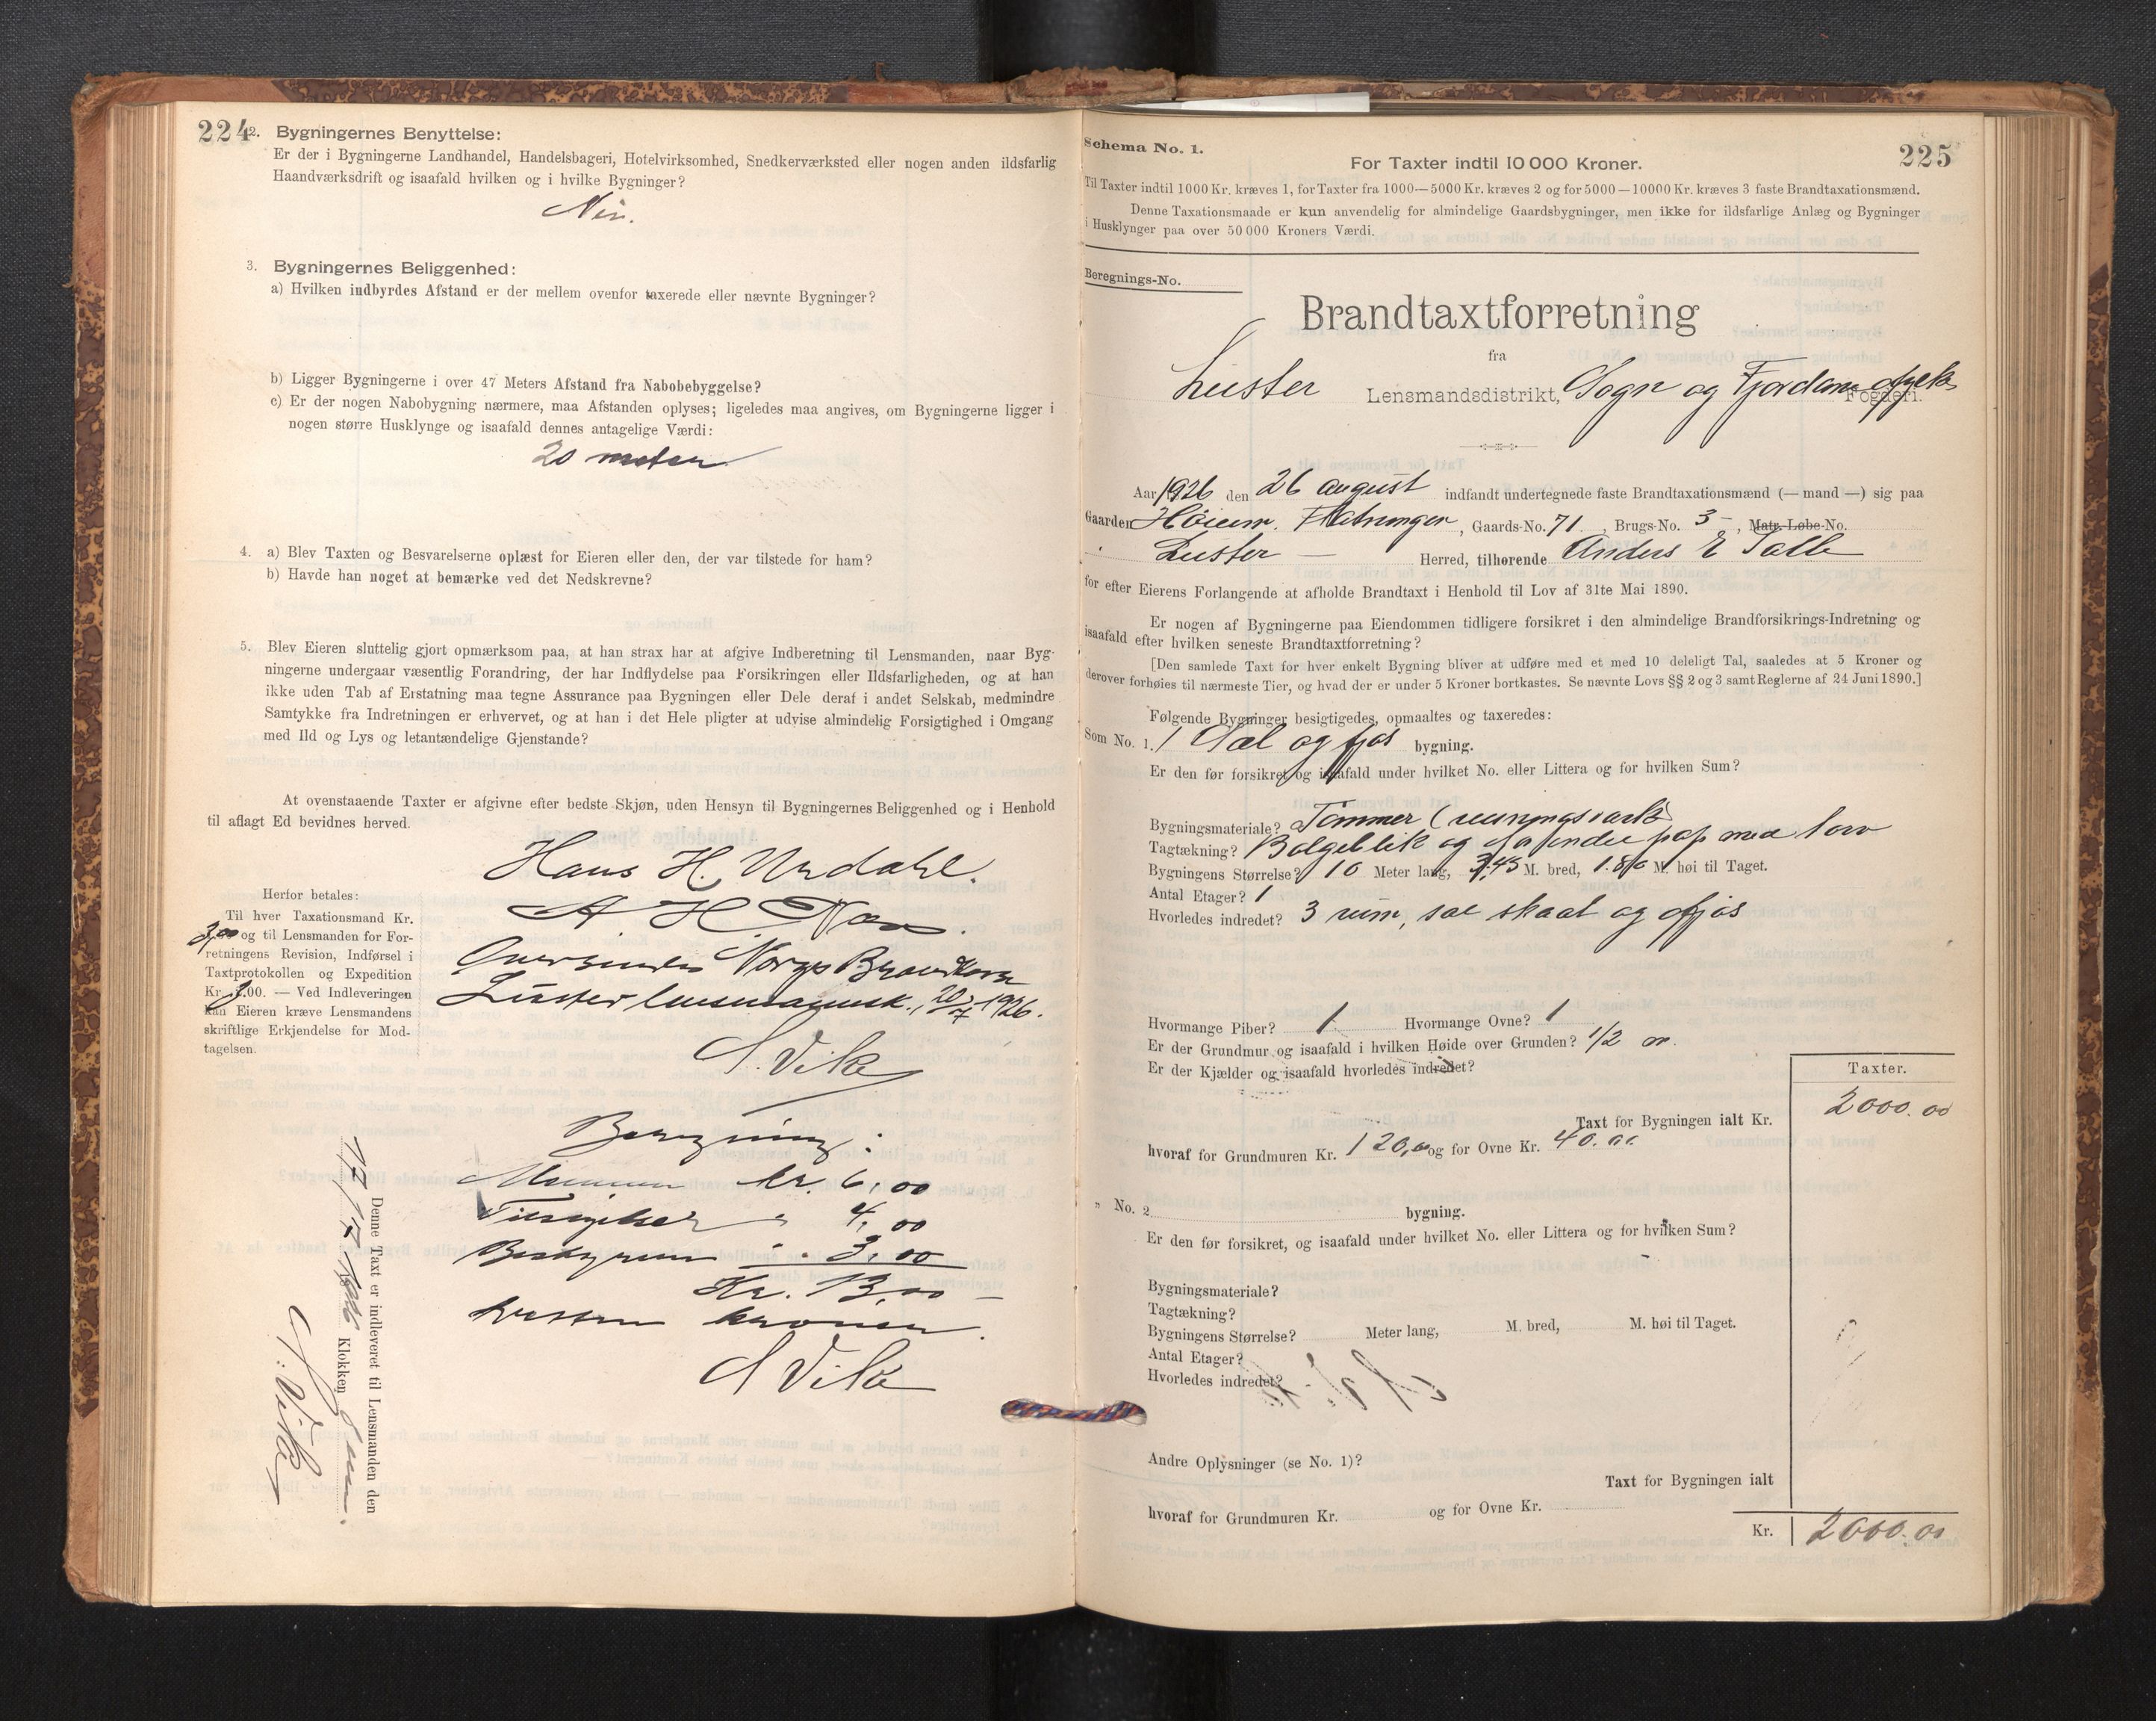 224
2. Bygningernes Benyttelse:
Er der i Bygningerne Landhandel, Handelsbageri, Hotelvirksomhed, Snedkerværksted eller nogen anden ildsfarlig
Haandværksdrift og isaafald hvilken og i hvilke Bygninger?
Nei.
3. Bygningernes Beliggenhed:
a) Hvilken indbyrdes Afstand er der mellem ovenfor taxerede eller nævnte Bygninger?
b) Ligger Bygningerne i over 47 Meters Afstand fra Nabobebyggelse?
c) Er der nogen Nabobygning nærmere, maa Afstanden oplyses; ligeledes maa angives, om Bygningerne ligger i
nogen større Husklynge og isaafald dennes antagelige Værdi:
20 meter
4. a) Blev Taxten og Besvarelserne oplæst for Eieren eller den, der var tilstede for ham?
b) Havde han noget at bemærke ved det Nedskrevne?
5. Blev Eieren sluttelig gjort opmærksom paa, at han strax har at afgive Indberetning til Lensmanden, naar Byg-
ningerne undergaar væsentlig Forandring, der har Indflydelse paa Forsikringen eller Ildsfarligheden, og at han
ikke uden Tab af Erstatning maa tegne Assurance paa Bygningen eller Dele deraf i andet Selskab, medmindre
Samtykke fra Indretningen er erhvervet, og at han i det Hele pligter at udvise almindelig Forsigtighed i Omgang
med Ild og Lys og letantændelige Gjenstande?
At ovenstaaende Taxter er afgivne efter bedste Skjøn, uden Hensyn til Bygningernes Beliggenhed og i Henhold
til aflagt Ed bevidnes herved.
Hans H. Urdahl.
A. H. Næs.
Herfor betales:
Til hver Taxationsmand Kr.
3,00 og til Lensmanden for For-
retningens Revision, Indførsel i
Taxtprotokollen og Expedition
Kr. 2.00. — Ved Indleveringen
kan Eieren kræve Lensmandens
skriftlige Erkjendelse for Mod-
tagelsen.
Oversendes Norges Brandkasse
Luster lensmannsk., 20/7-1926.
S. Vike
Beregning:
Mennene kr. 6,00
4,00
3,00
Kr. 13,00
tretten kroner.
S Vike
Denne Taxt er indleveret til Lensmanden den
17/7 1926 Klokken
S. Vike
225
Schema No. 1.
For Taxter indtil 10 000 Kroner.
Til Taxter indtil 1000 Kr. kræves 1, for Taxter fra 1000—5000 Kr. kræves 2 og for 5000—10000 Kr. kræves 3 faste Brandtaxationsmænd.
Denne Taxationsmaade er kun anvendelig for almindelige Gaardsbygninger, men ikke for ildsfarlige Anlæg og Bygninger
i Husklynger paa over 50 000 Kroners Værdi.
Beregnings-No.
Brandtaxtforretning
fra
Luster Lensmandsdistrikt, Sogn og Fjordane fylke Fogderi.
Aar 1926 den 26 august indfandt undertegnede faste Brandtaxationsmænd (— mand —) sig paa
Gaarden Høium, Gaards-No. 71, Brugs-No. 3, Matr.-Løbe-No.
Luster Herred, tilhørende Anders E
for efter Eierens Forlangende at afholde Brandtaxt i Henhold til Lov af 31te Mai 1890.
Er nogen af Bygningerne paa Eiendommen tidligere forsikret i den almindelige Brandforsikrings-Indretning og
isaafald efter hvilken seneste Brandtaxtforretning?
[Den samlede Taxt for hver enkelt Bygning bliver at udføre med et med 10 deleligt Tal, saaledes at 5 Kroner og
derover forhøies til nærmeste Tier, og hvad der er under 5 Kroner bortkastes. Se nævnte Lovs §§ 2 og 3 samt Reglerne af 24 Juni 1890.]
Følgende Bygninger besigtigedes, opmaaltes og taxeredes:
Som No. 1. 1 Sæl og fjøs bygning.
Er den før forsikret og isaafald under hvilket No. eller Littera og for hvilken Sum?
Bygningsmateriale? Tømmer
Tagtækning? Bølgeblik og papp med torv
Bygningens Størrelse? 10 Meter lang, 3,45 M. bred, 1.80 M. høi til Taget.
Antal Etager? 1
Hvorledes indredet? 3 rum, sæl skaat og fjøs
Hvormange Piber? 1 Hvormange Ovne? 1
Er der Grundmur og isaafald i hvilken Høide over Grunden? 1/2 m.
Er der Kjælder og isaafald hvorledes indredet?
Taxter.
Taxt for Bygningen ialt Kr. 2000.00
hvoraf for Grundmuren Kr. 120,00 og for Ovne Kr. 40.00.
„ No. 2 bygning.
Er den før forsikret, og isaafald under hvilket No. eller Littera og for hvilken Sum?
Bygningsmateriale?
Tagtækning?
Bygningens Størrelse? Meter lang, M. bred, M. høi til Taget.
Antal Etager?
Hvorledes indredet?
Andre Oplysninger (se No. 1)?
Taxt for Bygningen ialt
hvoraf for Grundmuren Kr. og for Ovne Kr.
Kr. 2000.00